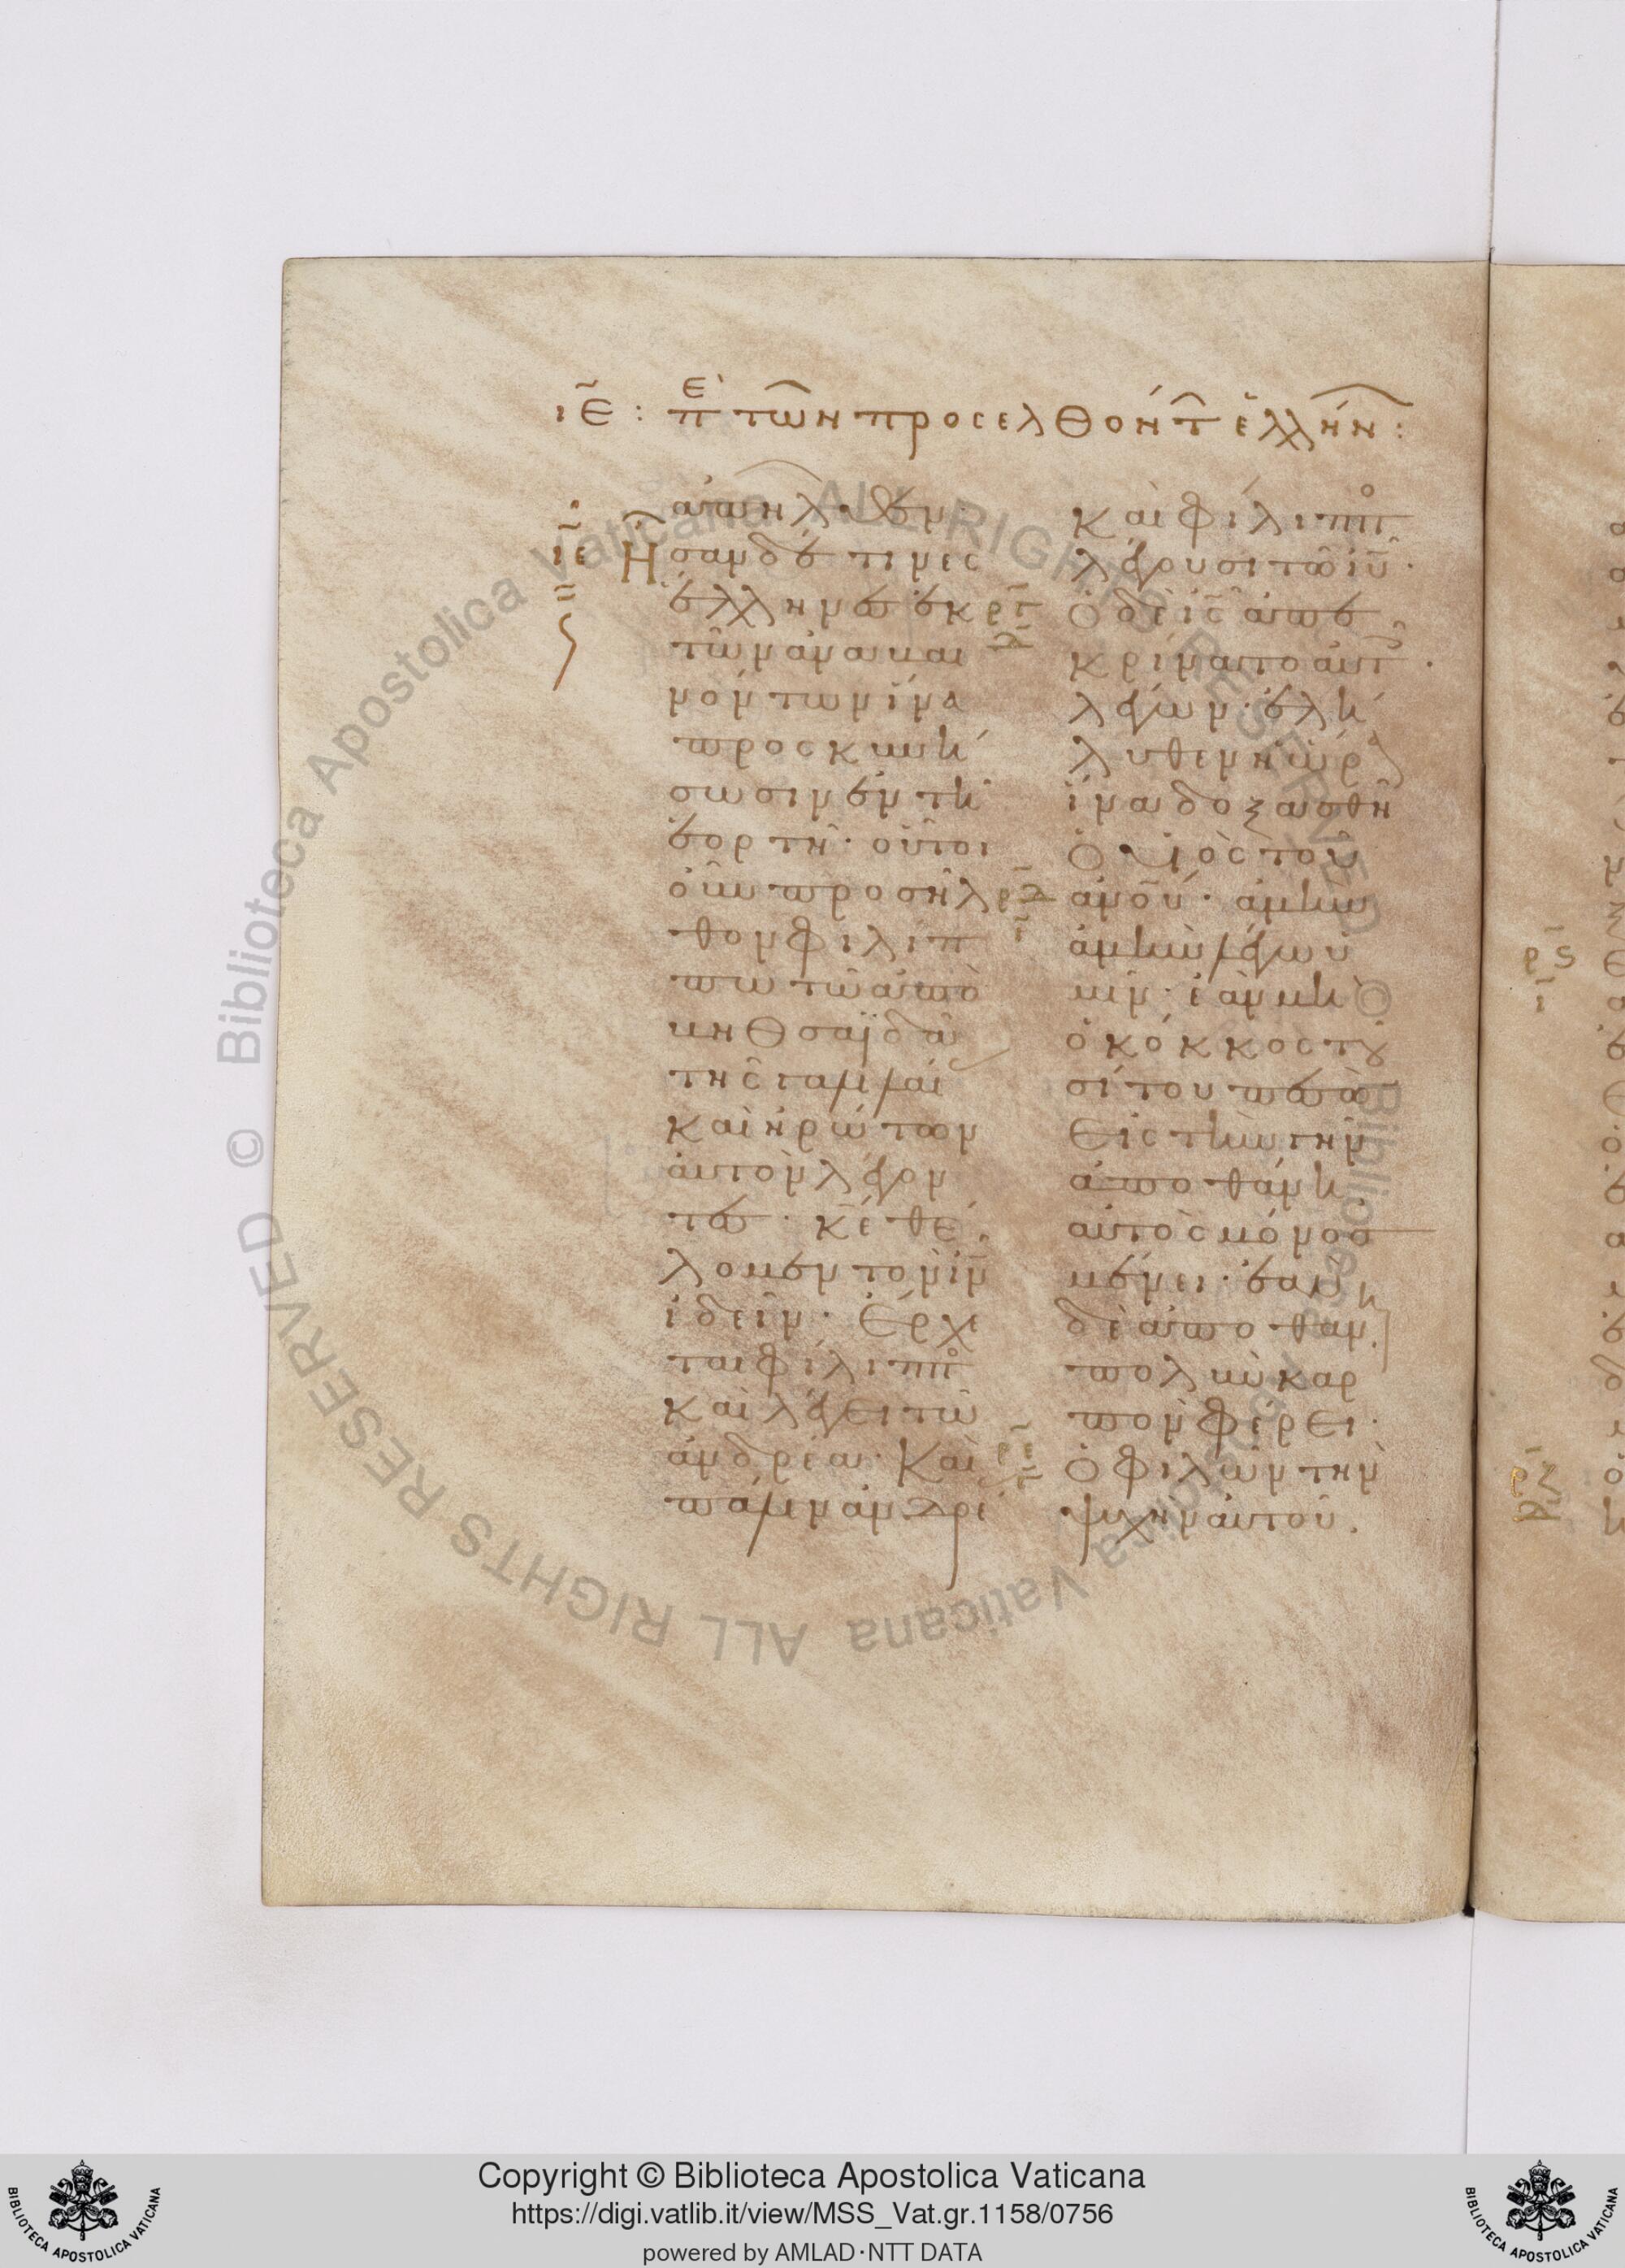 ιε : πε τῶν προσελθόντ ἑλλήν :
ἀπῆλθεν
ιε Ἦσαν δέ τινες
ἕλληνες ἐκ
ρι
δ
τῶν ἀναβαι
νόντων ἵνα
προσκυνή
σωσιν ἐν τῆ
ἑορτῆ· οὗτοι
οὖν προσῆλ
θον φιλίπ
πω τῶ ἀπὸ
βηθσαϊδὰ
τῆς γαλιλαί
καὶ ἠρώτων
αὐτὸν λέγον
τες· κε θέ
λομεν τὸν ιν
ἰδεῖν· Ἔρχε
ται φίλιππο
καὶ λέγει τῶ
ἀνδρέα· Καὶ
πάλιν ἀνδρέ
καὶ φίλιππο
λέγουσι τῶ ιυ·
Ὁ δὲ ις ἀπε
κρίνατο αὐτ·
λέγων· ἐλή
λυθεν ἡ ὥρ
ἵνα δοξασθῆ
Ὁ υἱὸς τοῦ
ρδ
ι
ανου· ἀμὴν
ἀμὴν λέγω ὑ
μῖν· ἐὰν μὴ
ὁ κόκκος τοῦ
σίτου πεσὼ
Εἰς τὴν γῆν
ἀποθάνη
αὐτὸς μόνος
μένει· ἐὰν
δὲ ἀποθάν
πολὺν καρ
πὸν φέρει·
ρε
Ὁ φιλῶν τὴν
ψυχὴν αὐτοῦ
ρς
ι
ρζ
Copyright © Biblioteca Apostolica Vaticana
https://digi.vatlib.it/view/MSS_Vat.gr.1158/0756
powered by AMLAD·NTT DATA
BIBLIOTECA APOSTOLICA VATICANA
BIBLIOTECA APOSTOLICA VATICANA
© Biblioteca Apostolica Vaticana ALL RIGHTS RESERVED
© Biblioteca Apostolica Vaticana ALL RIGHTS RESERVED